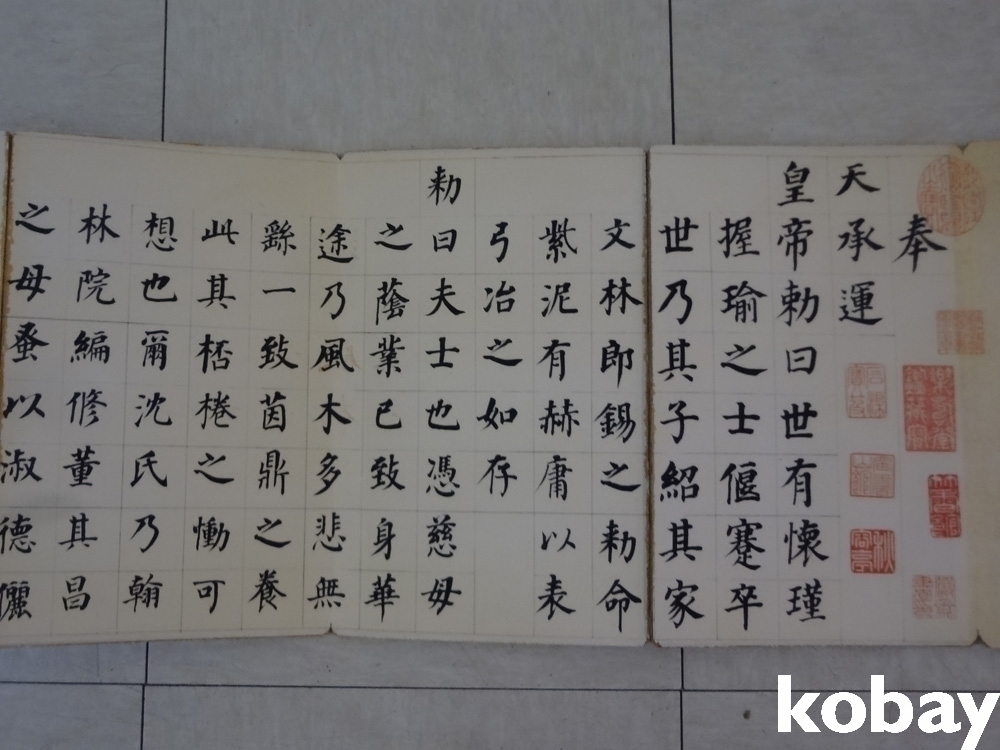 奉
天承運
皇帝勅曰世有懷瑾
握瑜之士偃蹇卒
世乃其子紹其家
文林郎錫之勅命
紫泥有赫庸以表
弓冶之如存
勅曰夫士也憑慈母
之蔭業已致身華
途乃風木多悲無
繇一致茵鼎之養
此其桮棬之慟可
想也爾沈氏乃翰
林院編修董其昌
之母蚤以淑德儷
kobay